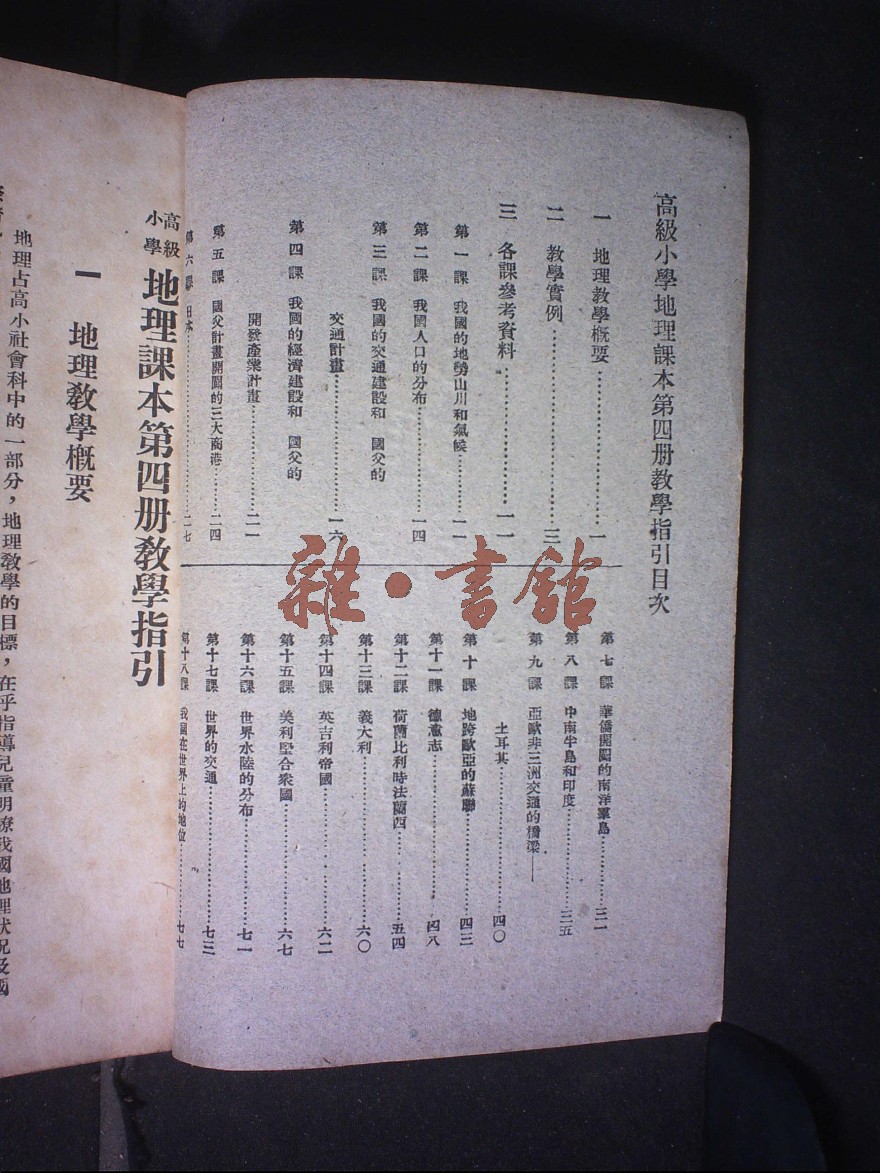 高級小學地理課本第四册教學指引目次
一 地理教學概要…………一
二 教學實例…………三
三 各課參考資料…………一一
第一課 我國的地勢山川和氣候…………一一
第二課 我國人口的分布…………一四
第三課 我國的交通建設和 國父的
交通計畫…………一六
第四課 我國的經濟建設和 國父的
開發產業計畫…………二一
第五課 國父計畫開闢的三大商港…………二四
第六課 日本…………二七
第七課 華僑開闢的南洋羣島…………三二
第八課 中南半島和印度…………三五
第九課 亞歐非三洲交通的橋梁——
土耳其…………四〇
第十課 地跨歐亞的蘇聯…………四三
第十一課 德意志…………四八
第十二課 荷蘭比利時法蘭西…………五四
第十三課 義大利…………六〇
第十四課 英吉利帝國…………六二
第十五課 美利堅合衆國…………六七
第十六課 世界水陸的分布…………七一
第十七課 世界的交通…………七三
第十八課 我國在世界上的地位…………七七
雜·書館
高級小學 地理課本第四册教學指引
一 地理教學概要
地理占高小社會科中的一部分，地理教學的目標，在乎指導兒童明瞭我國地理狀況及國